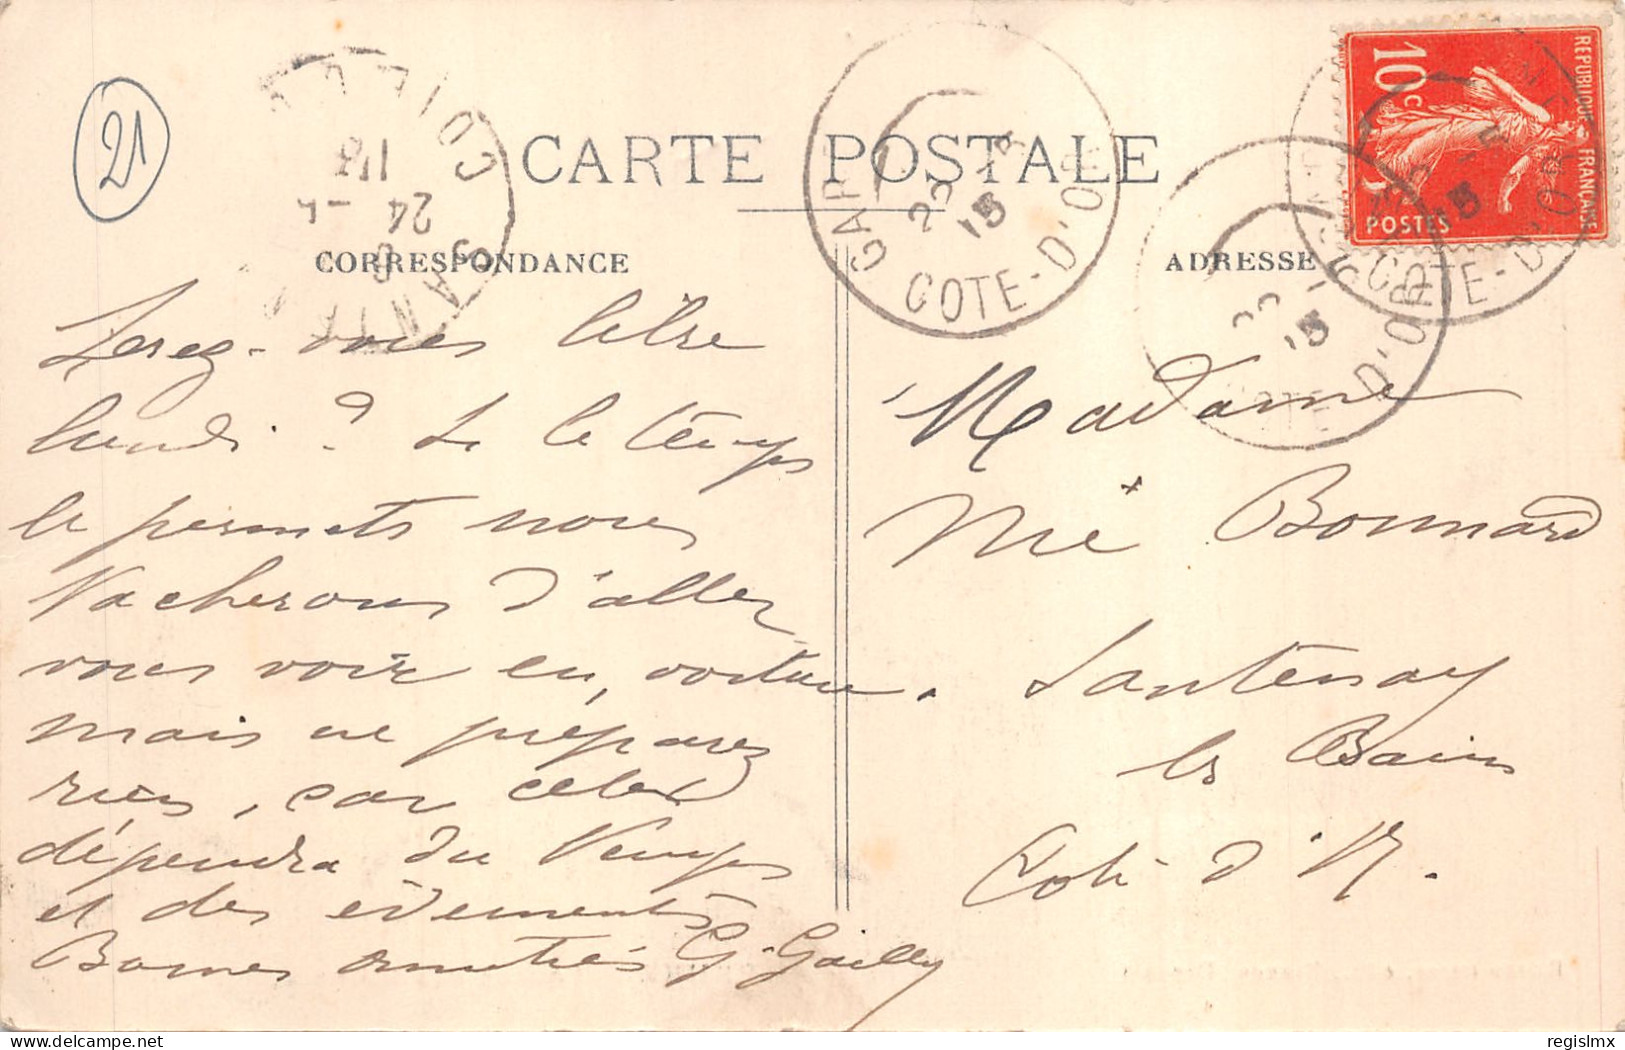 21
CARTE POSTALE
CORRESPONDANCE
ADRESSE
REPUBLIQUE FRANÇAISE
10c
POSTES
GARE
COTE-D'OR
22
15
COTE-D'OR
SANTENAY
24 -4
COTE-D'OR
Serez-vous libre
lundi ? Si le temps
le permets nous
tacherons d'aller
vous voir en voiture.
mais ne préparez
rien, car cela
dépendra du temps
et des évènements
Bonnes amitiés G. Gailly
Madame
Née Bonnard
Santenay
les Bains
Cote d'Or.
regislmx